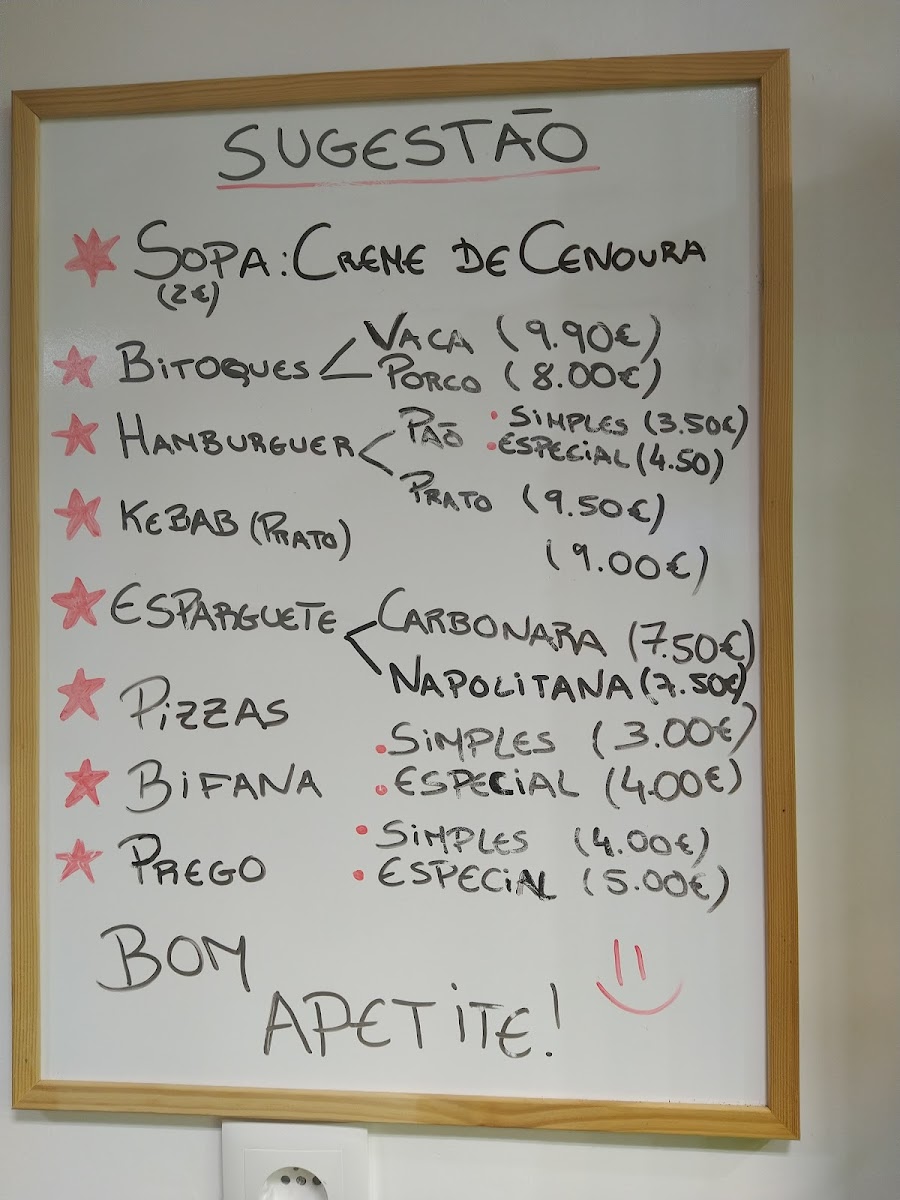 SUGESTÃO
SOPA: CREME DE CENOURA
(2€)
BITOQUES VACA (9.90€)
PORCO (8.00€)
HAMBURGUER PÃO • SIMPLES (3.50€)
• ESPECIAL (4.50)
PRATO (9.50€)
KEBAB (PRATO) (9.00€)
ESPARGUETE CARBONARA (7.50€)
NAPOLITANA (7.50€)
PIZZAS
BIFANA • SIMPLES (3.00€)
• ESPECIAL (4.00€)
PREGO • SIMPLES (4.00€)
• ESPECIAL (5.00€)
BOM
APETITE!